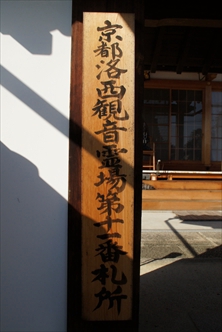 京都洛西観音霊場第十一番札所